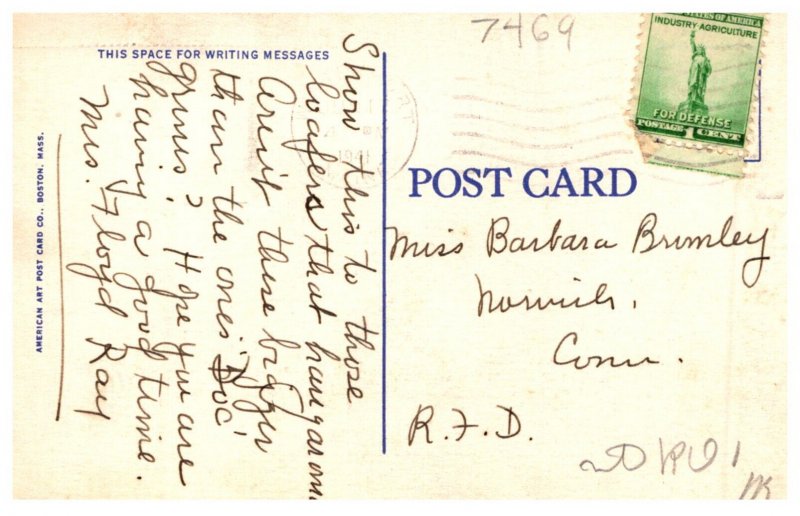 7469
UNITED STATES OF AMERICA
INDUSTRY AGRICULTURE
FOR DEFENSE
POSTAGE 1 CENT
THIS SPACE FOR WRITING MESSAGES
Show this to those
loafers that hang around
Aren't these bigger
than the ones 'Doc'
grows? Hope you are
having a good time.
Mrs. Floyd Ray
AMERICAN ART POST CARD CO., BOSTON, MASS.
POST CARD
Miss Barbara Brumley
Norwich,
Conn.
R.F.D.